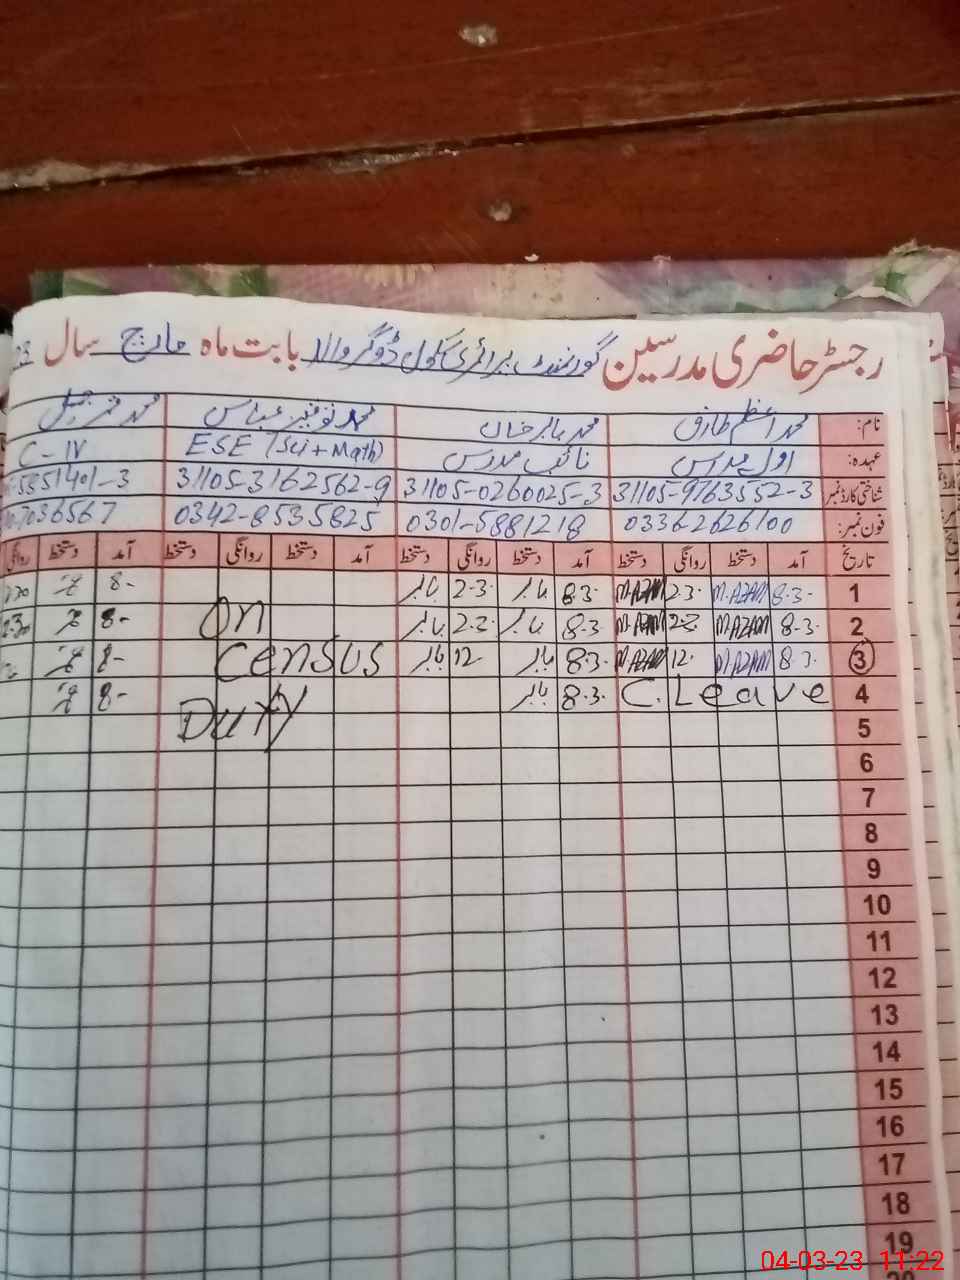 رجسٹر حاضری مدرسین گورنمنٹ پرائمری سکول ڈوگر والا بابت ماہ مارچ سال 23
نام: محمد اعظم طارق محمد بابر خان محمد توقیر عباس محمد
عہدہ: اول مدرس نائب مدرس ESE (Sci + Math) C-IV
شناختی کارڈ نمبر 31105-9763552-3 31105-0260025-3 31105-3162562-9 5851401-3
فون نمبر: 03362626100 0301-5881218 0342-8535825 7036567
تاریخ آمد دستخط روانگی دستخط آمد دستخط روانگی دستخط آمد دستخط روانگی دستخط آمد دستخط روانگی
1 8-3. M.AZAM 2.3. M.AZAM 8.3. بابر 2-3. بابر 8-
2 8-3. M.AZAM 2.3 M.AZAM 8.3. بابر 2.3. بابر On 8-
3 8-3. MAZAM 12. MAZAM 8.3. بابر 12 بابر Census 8-
4 C. Leave 8.3. بابر Duty 8-
5
6
7
8
9
10
11
12
13
14
15
16
17
18
19
04-03-23 11:22